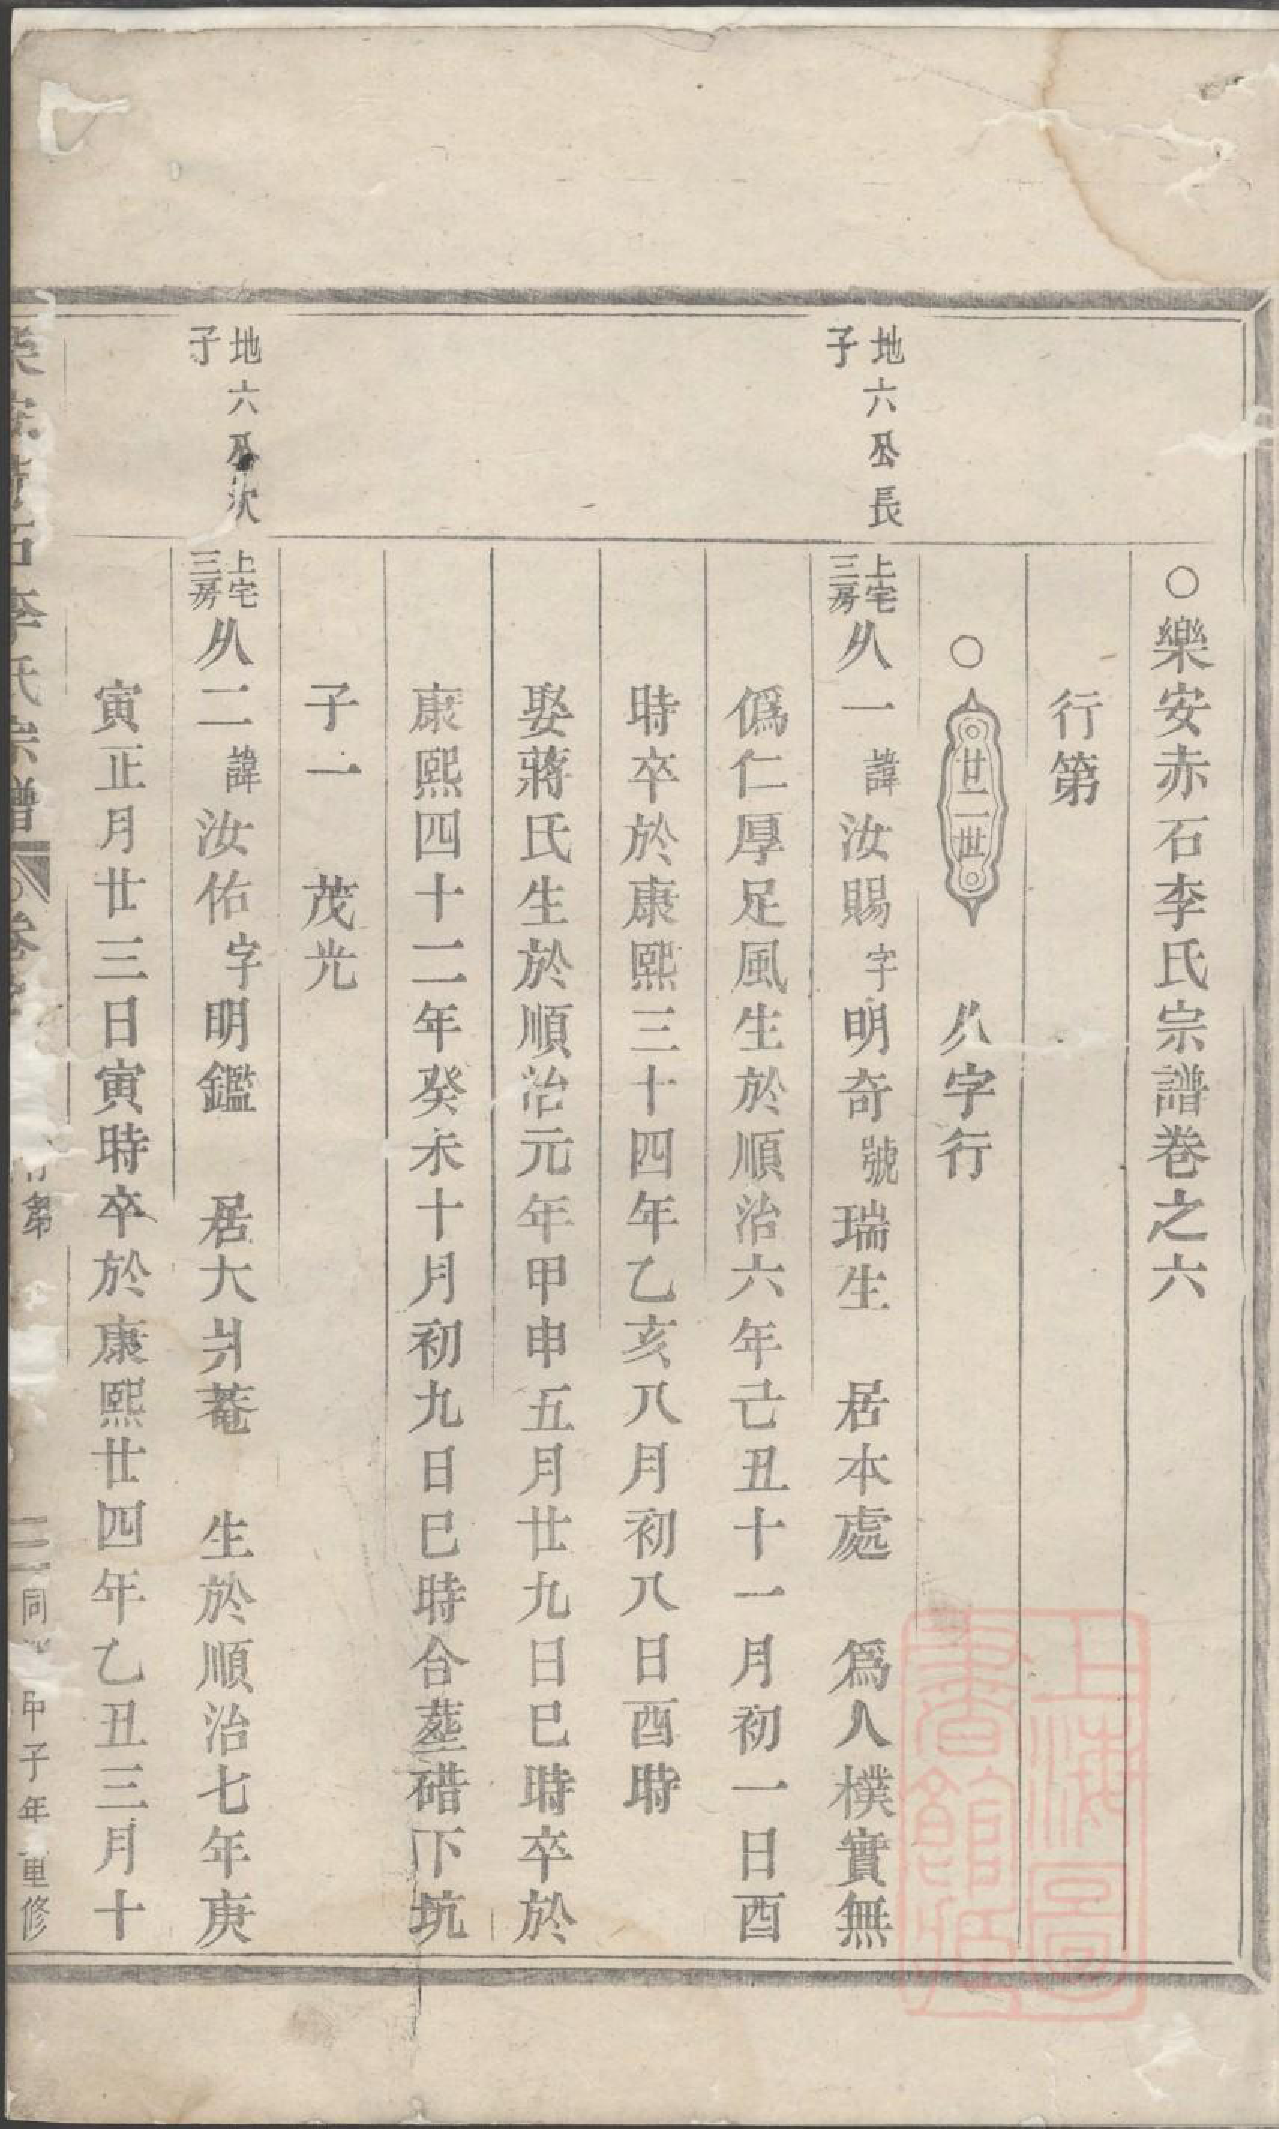 ○樂安赤石李氏宗譜卷之六
行第
○廿二世 㕥字行
地六公長子
上宅三房㕥一諱汝賜字明奇號瑞生 居本處 爲人樸實無
僞仁厚足風生於順治六年己丑十一月初一日酉
時卒於康熙三十四年乙亥八月初八日酉時
娶蔣氏生於順治元年甲申五月廿九日巳時卒於
康熙四十二年癸未十月初九日巳時合塟碏下坑
子一 茂光
地六公次子
上宅三房㕥二諱汝佑字明鑑 居大庵 生於順治七年庚
寅正月廿三日寅時卒於康熙廿四年乙丑三月十
李氏宗譜 卷 行第 甲子年重修
上海圖書館藏